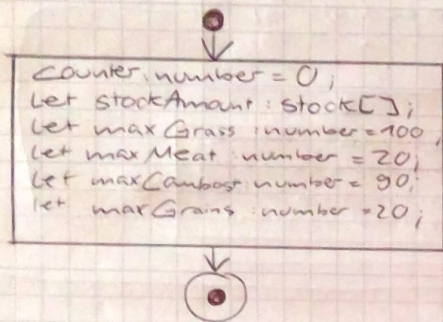 counter: number = 0;
let stockAmount: stock[];
let maxGrass: number = 100;
let maxMeat: number = 20;
let maxCambost: number = 90;
let maxGrains: number = 20;